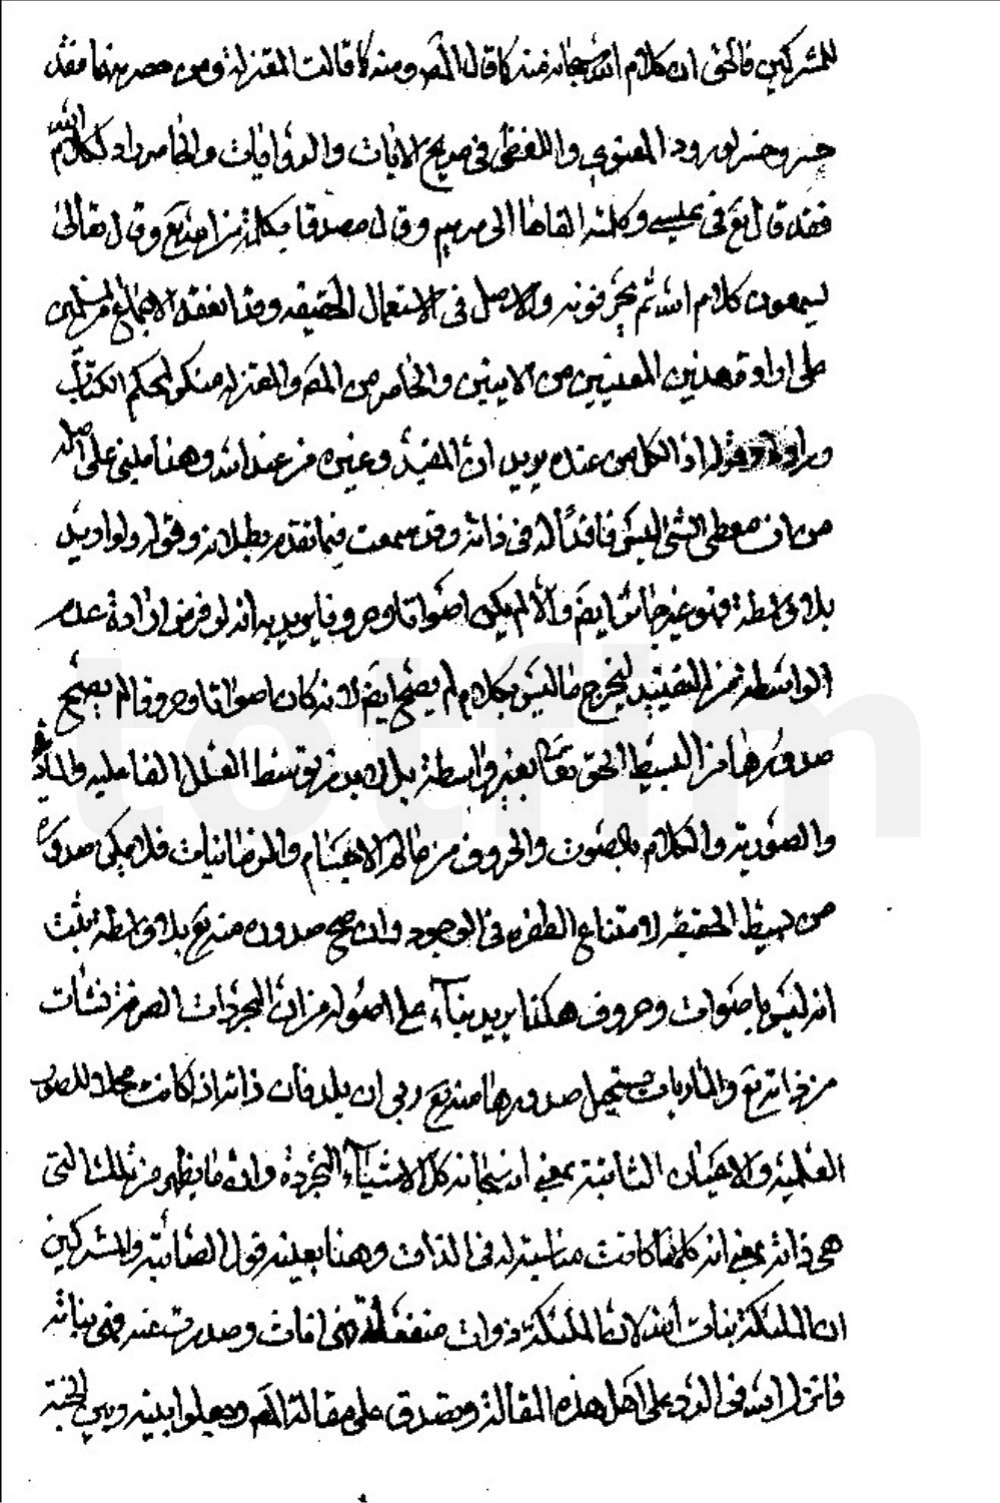 للمشركين فالحق ان كلام الله سبحانه منه كما قال المص ومنه كما قالت المعتزلة ومن حصر بهما فقد
خسر لورود المعنوي واللفظي في صريح الايات والروايات والخاصر راد لكلام الله
فقد قال تع في عيسى وكلمته القاها الى مريم وقال مصدقا بكلمة من الله تع وقال تعالى
يسمعون كلام الله ثم يحرفونه والاصل في الاستعمال الحقيقة وقد انعقد الاجماع من المسلمين
على ارادة هذين المعنيين من الايتين والحاصر من المص والمعتزلة منكر لمحكم الكتاب
وراد له وقوله اذ الكل من عنده يريد ان المفيد وغيره من عند الله وهذا مبني على اصله
من ان معطي الشئ ليس فاقدا له في ذاته وقد سمعت فيما تقدم بطلانه وقوله ولو اريد
بلا واسطة فهو غير جائز ايضا والا لم يكن اصواتا وحروفا يريد به انه لو فرض ارادة عدم
الواسطة من التقييد ليخرج ما ليس بكلام لم يصح ايضا لانه كان اصواتا وحروفا لم يصح
صدورها من البسيط الحق تعالى بغير واسطة بل لا بد من توسط العلل الفاعلية والمادية
والصورية والكلام بالصوت والحروف من عالم الاجسام والمرضانيات فلا يمكن صدوره
من بسيط الحقيقة لامتناع الطفرة في الوجود وان صح صدوره منه تع بلا واسطة ثبت
انه ليس باصوات وحروف هكذا يريد بناء على اصوله من ان المجردات الصرفة نشات
من ذاته تع والماديات يستحيل صدورها منه تع ان يلد فان ذاته اذا كانت محلا للصور
العلمية والاعيان الثابتة بمعنى انه سبحانه كل الاشياء المجردة وان ما يظهر من تلك التي
هي ذاته بمعنى انه كلها كانت مناسبة له في الذات وهذا بعينه قول الصائبة والمشركين
ان الملئكة بنات الله لان الملئكة ذوات منفعلة فهي اناث وصدرت عنه فهي بناته
فانزل الله في الرد على اهل هذه المقالة وتصدق على مقالة المص وجعلوا بينه وبين الجنة
totfim